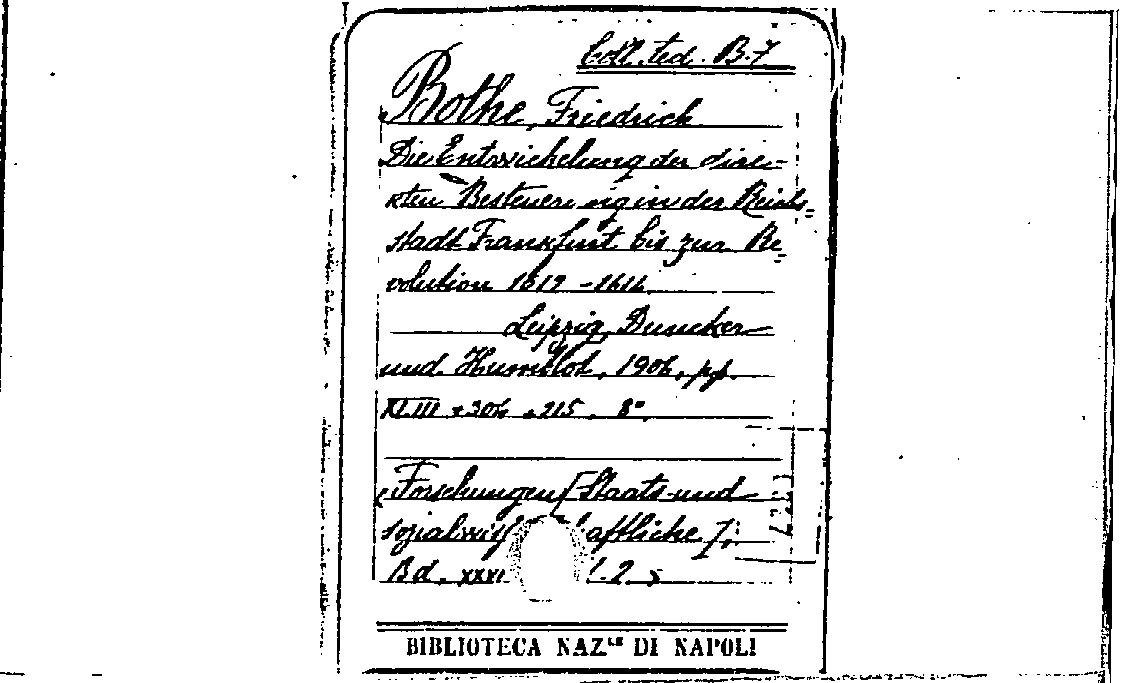 Coll. ted. B. 7
Bothe, Friedrich
Die Entwickelung der dire-
kten Besteuerung in der Reichs=
stadt Frankfurt bis zur Re=
volution 1612 - 1614
Leipzig, Duncker
und Humblot, 1906, pp.
XLIII + 304 + 215. 8°.
Forschungen [Staats-und
sozialwis aftliche ];
Bd. XXVI . 2.
BIBLIOTECA NAZ.LE DI NAPOLI